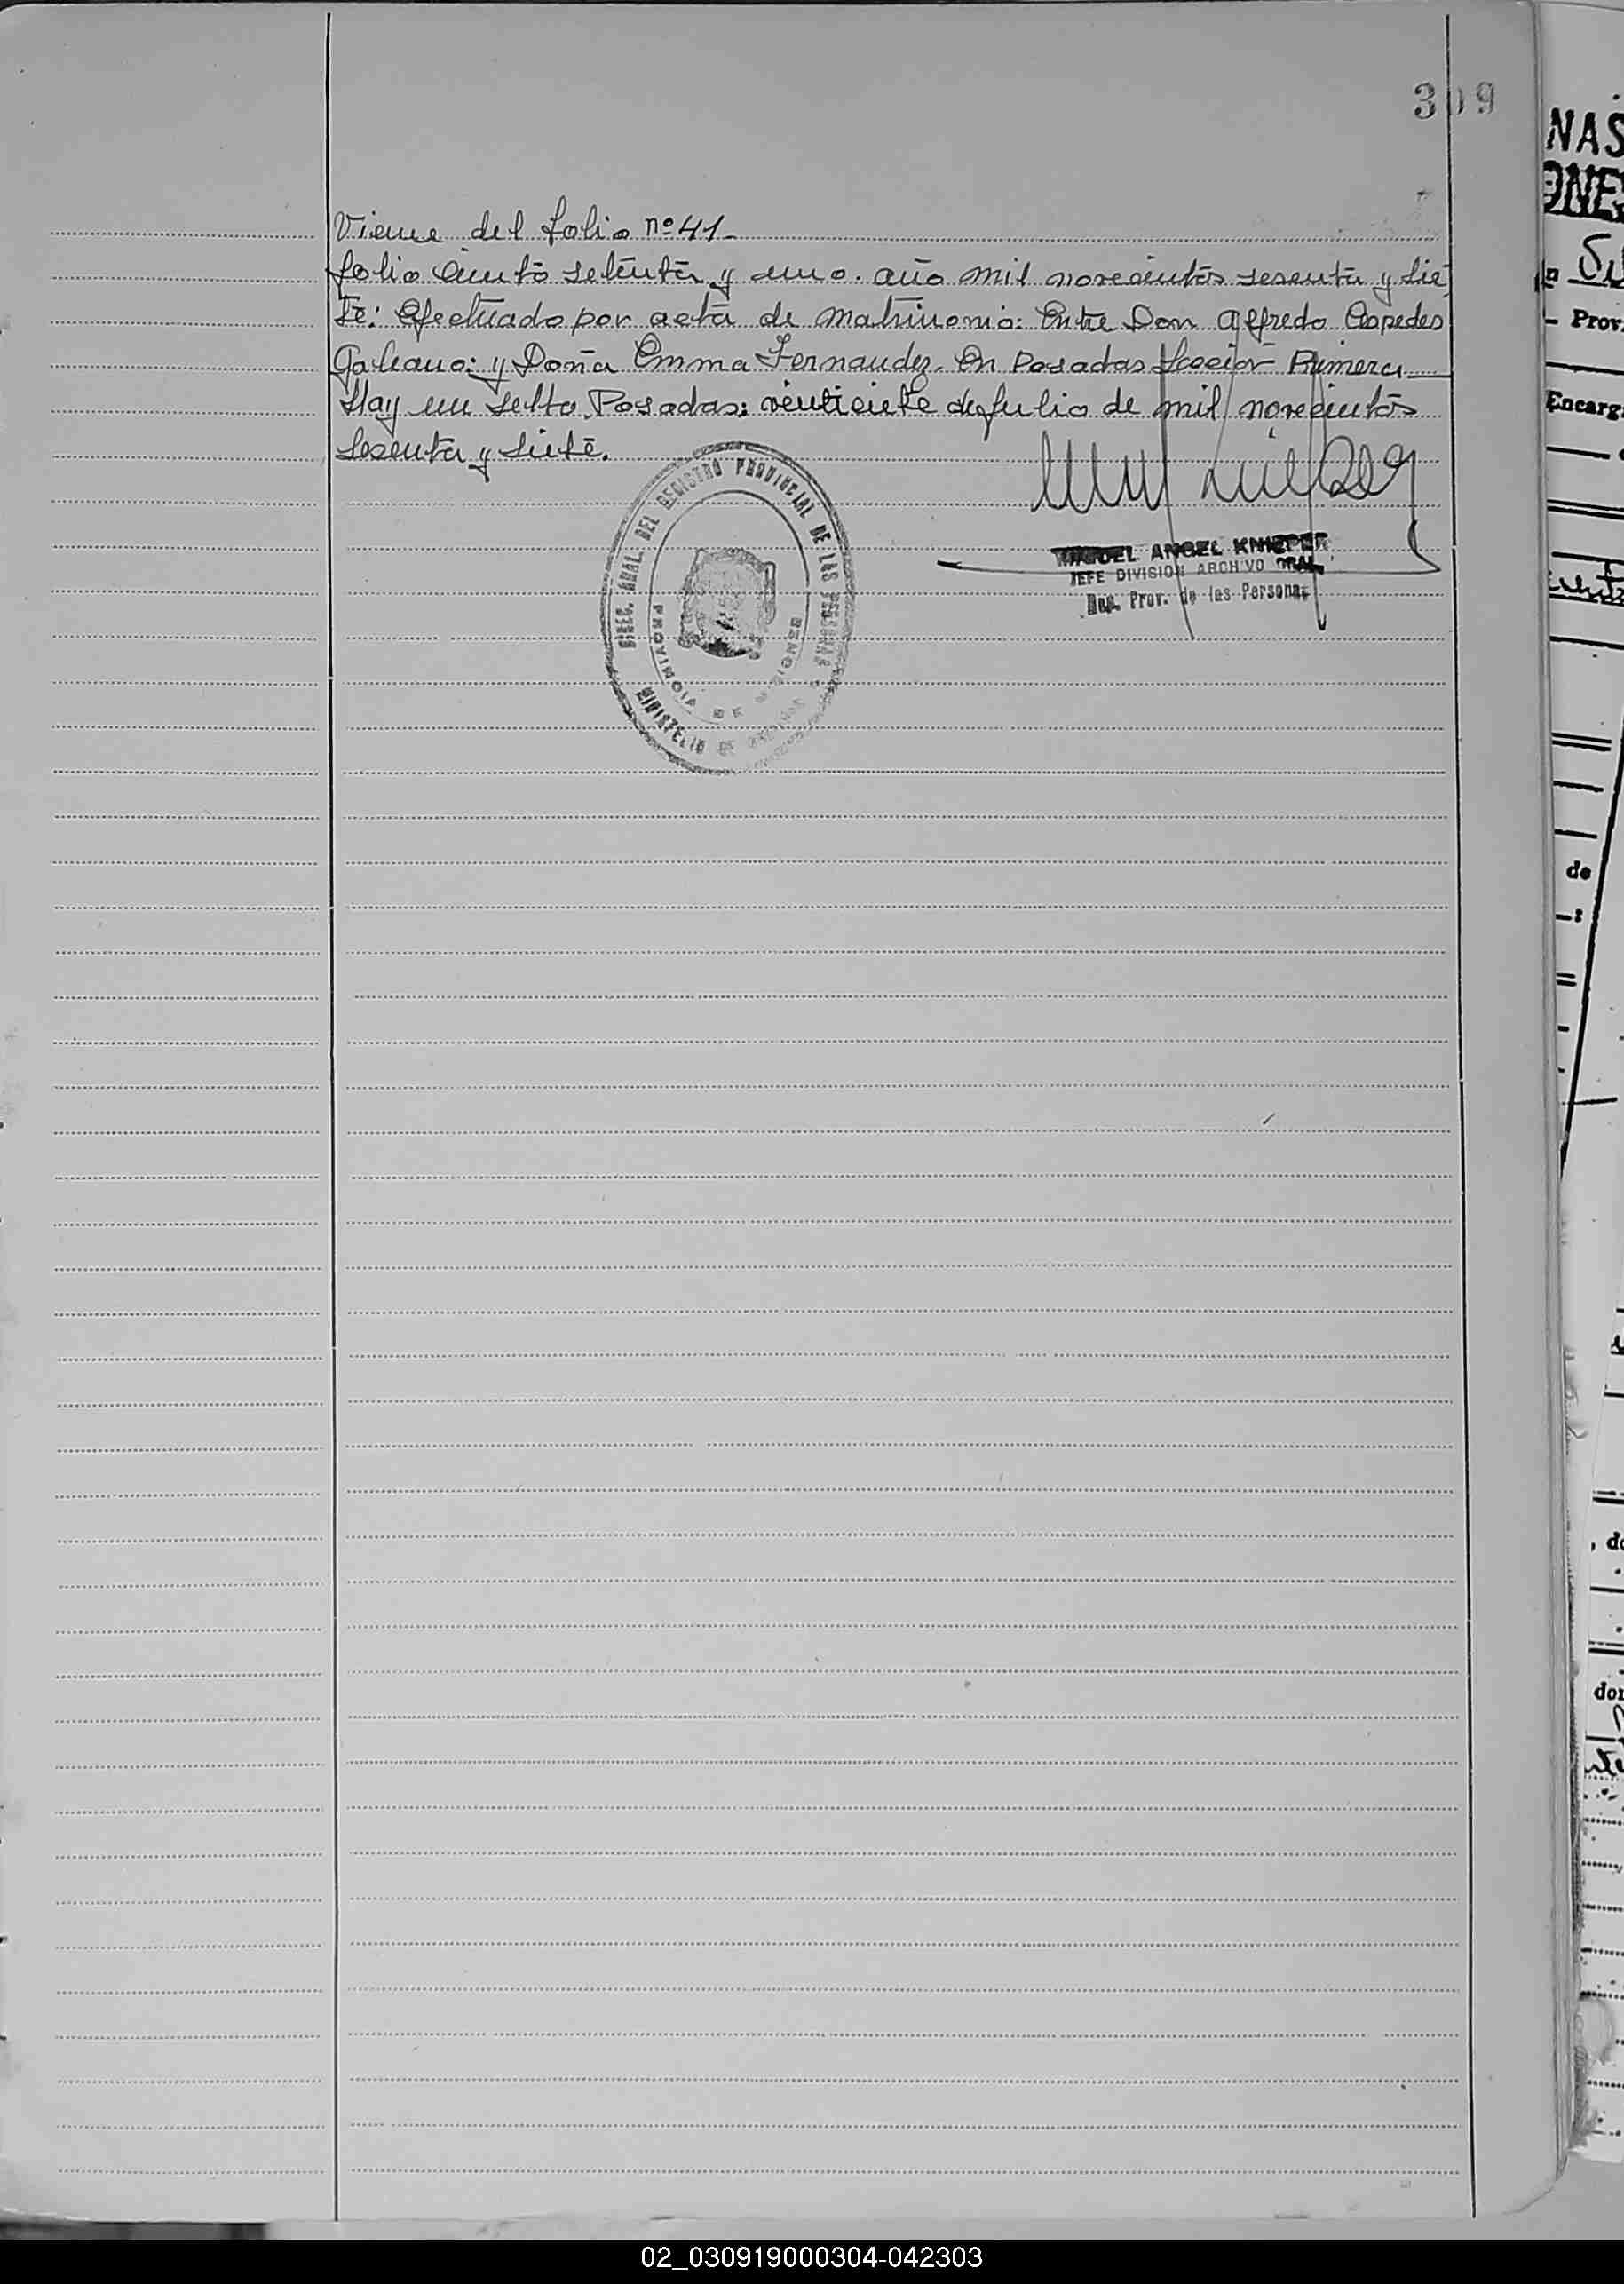 309
Viene del folio nº 41-
folio ciento setenta y uno. año mil novecientos sesenta y sie
te: Efectuado por acta de matrimonio: Entre Don Alfredo Cespedes
Galeano: y Doña Emma Fernandez. En Posadas Sección Primera
Hay un sello. Posadas: veintisiete de julio de mil novecientos
sesenta y siete.
DIREC. GRAL. DEL REGISTRO PROVINCIAL DE LAS PERSONAS
PROVINCIA DE MISIONES
MINISTERIO DE
MIGUEL ANGEL KNIEPER
JEFE DIVISION ARCHIVO GRAL.
Reg. Prov. de las Personas
NAS
ONES
Prov.
Encarg
de
, de
don
02_030919000304-042303